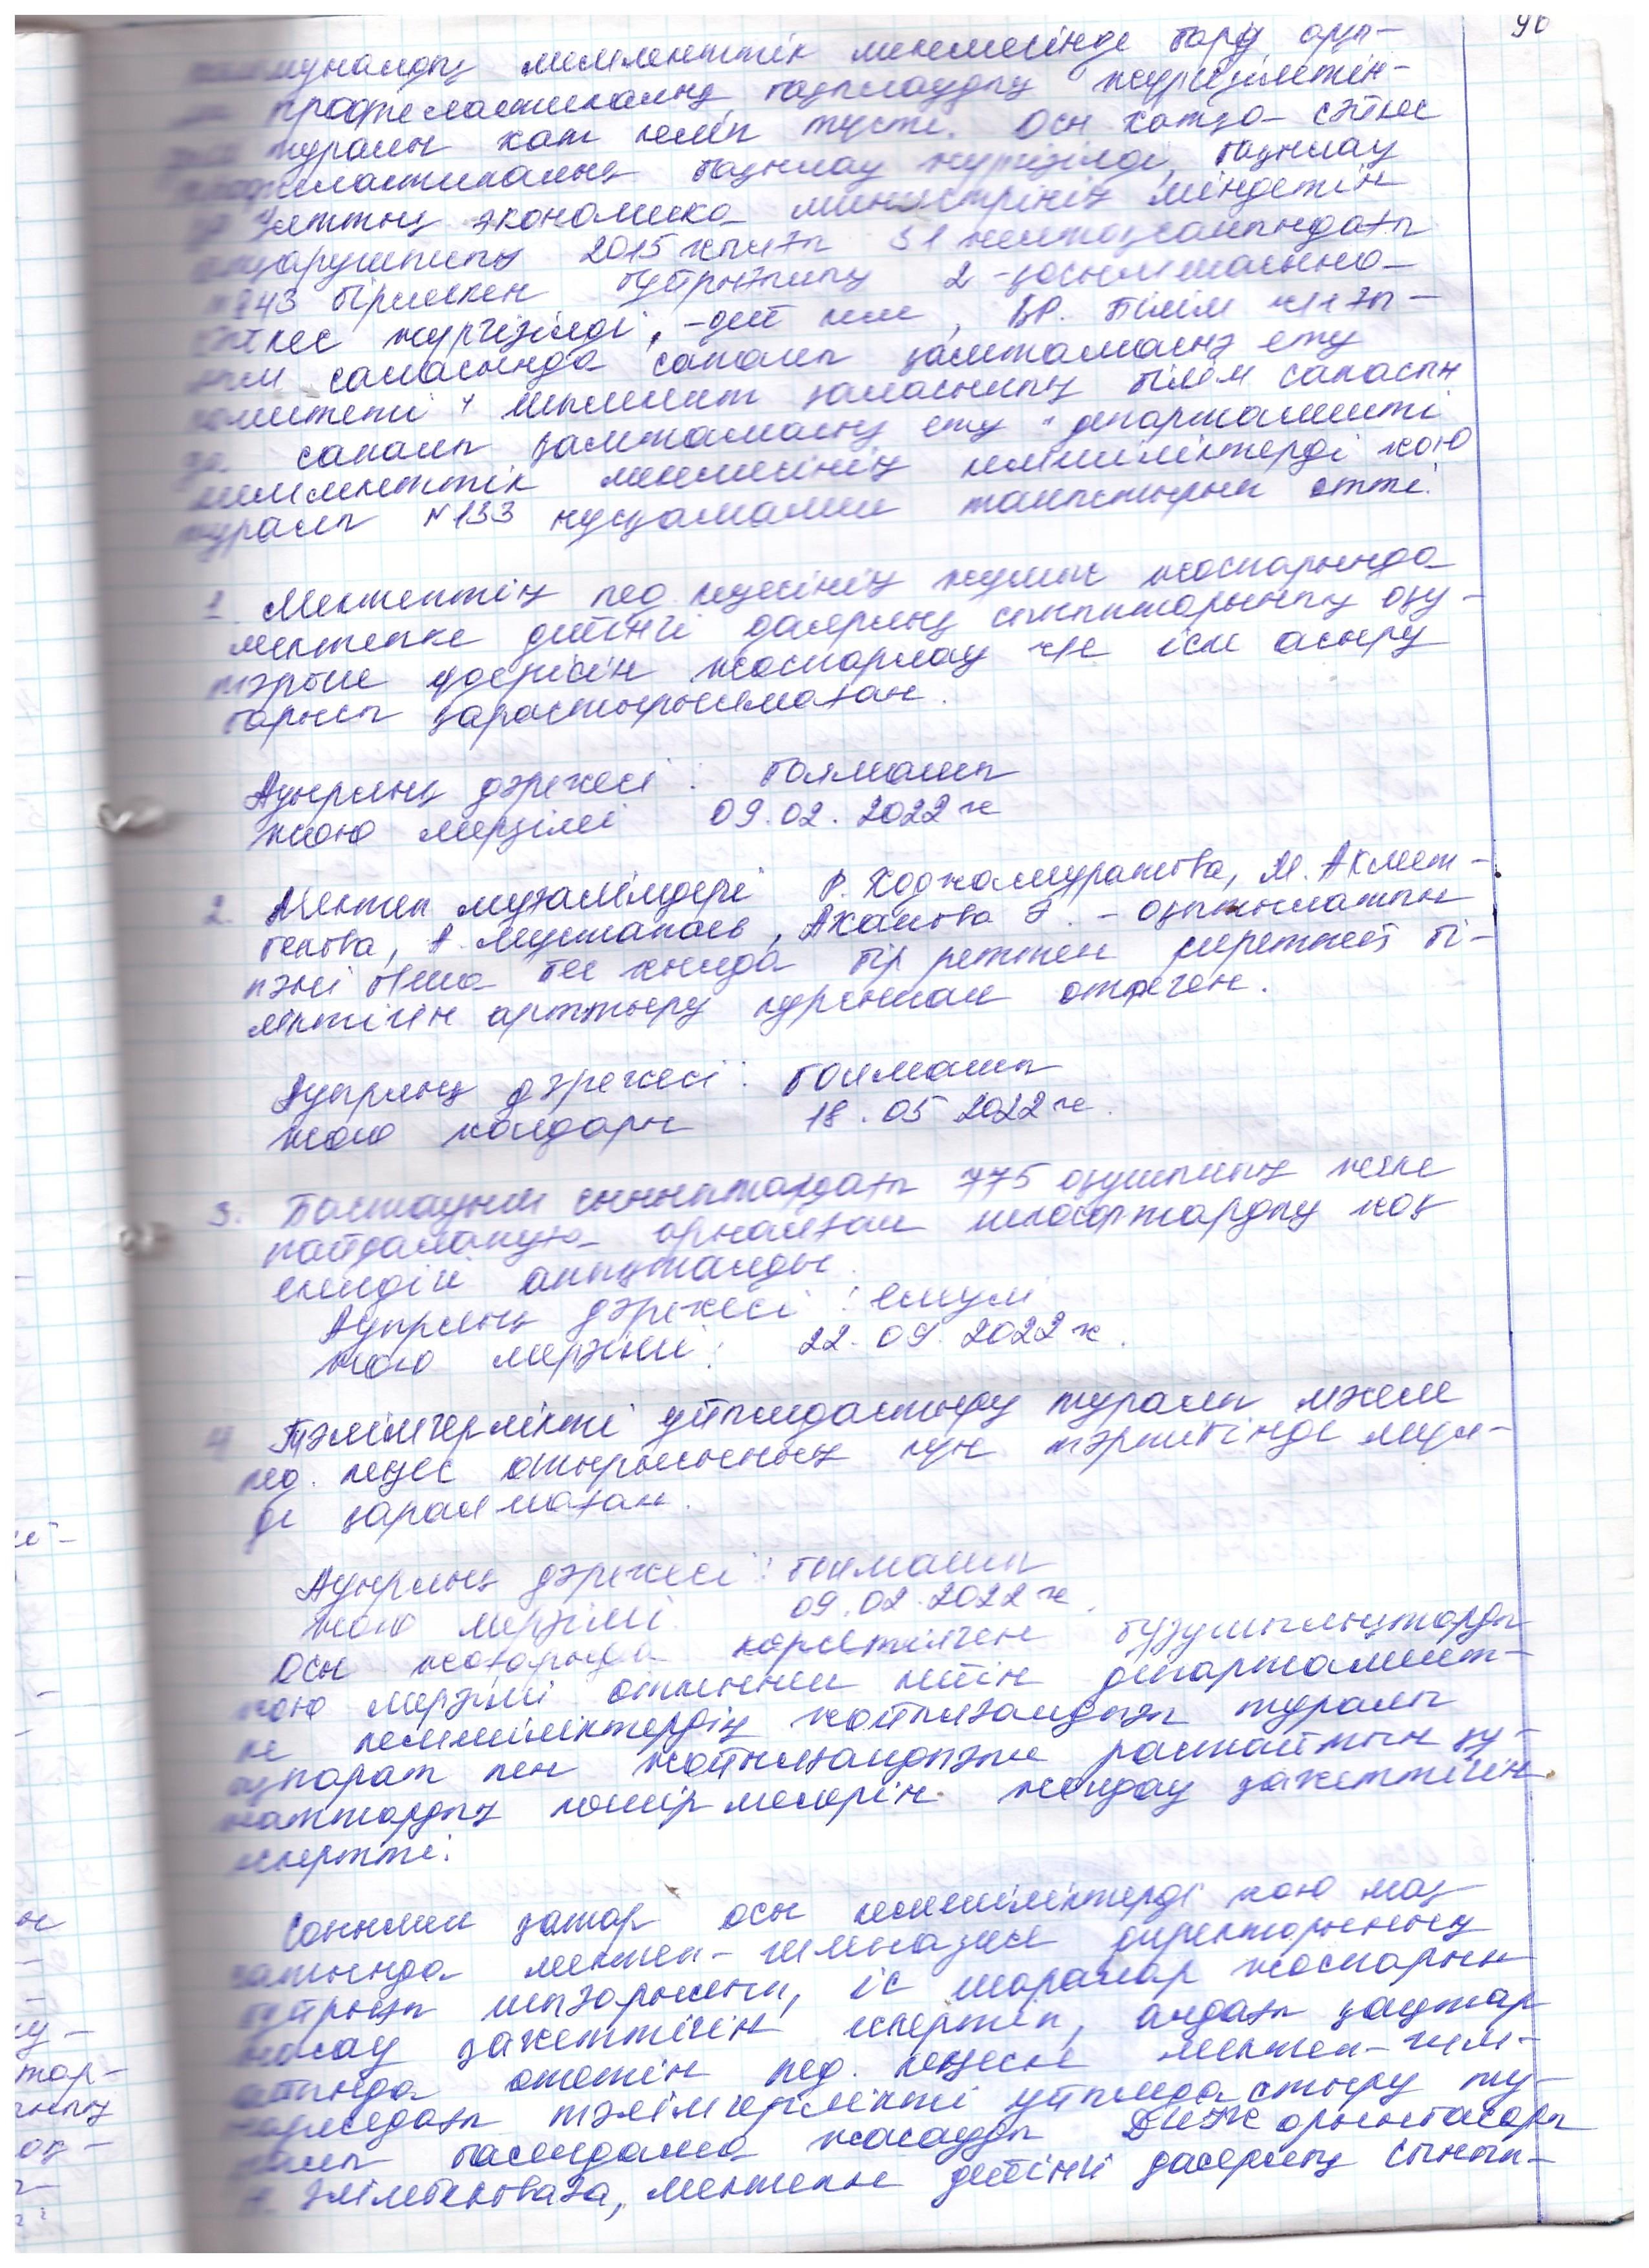 90
коммуналдық мемлекеттік мекемесінде бару арқ-
профилактикалық бақылауды жүргізілетін-
туралы хат келіп түсті. Осы хатқа сәйкес
профилактикалық бақылау жүргізілді, бақылау
ҚР Ұлттық экономика министрінің міндетін
атқарушының 2015 жылғы 31 желтоқсандағы
№ 843 біріккен бұйрығының 2-қосымшасына
сәйкес жүргізілді,-дей келе, ҚР. Білім және ғы-
лым саласында сапаны қамтамасыз ету
комитеті Шымкент қаласының білім сапасын
сапаны қамтамасыз ету департаменті
мемлекеттік мекемесінің кемшіліктерді жою
туралы №133 нұсқамамен таныстырып өтті.
1. Мектептің пед. кеңесінің жұмыс жоспарында
мектепке дейінгі даярлық сыныптарының оқу-
тәрбие үдерісін жоспарлау және іске асыру
барысы қарастырылмаған.
Ауырлық дәрежесі: болмашы
жою мерзімі 09.02.2022 ж
2. Мектеп мұғалімдері Р. Ходжамуратова, М. Ахмет-
бекова, А. Мустапаев, Аханова Э. - оқытылатын
пәні б/ша бес жылда бір реттен сиретпей бі-
ліктігін арттыру курсынан өтпеген.
Ауырлық дәрежесі: болмашы
жою жолдары 18.05 2022 ж.
3. Бастауыш сыныптардағы 775 оқушының жеке
пайдалануға арналған шкафтардың жоқ
екендігі анықталды.
Ауырлық дәрежесі: елеулі
жою мерзімі: 22.09.2022 ж.
4 Тәлімгерлікті ұйымдастыру туралы мәселе
пед. кеңес отырысының күн тәртібінде мүл-
де қаралмаған.
Ауырлық дәрежесі: болмашы
жою мерзімі 09.02.2022 ж.
Осы жоғарыда көрсетілген бұзушылықтарды
жою мерзімі өткеннен кейін департамент-
ке кемшіліктердің жойылғандығы туралы
ақпарат пен жойылғандығын растайтын құ-
жаттардың көшірмелерін жолдау қажеттігін
ескертті.
Сонымен қатар осы кемшіліктерді жою мақ-
сатында мектеп-гимназия директорының
бұйрығы шығарылып, іс шаралар жоспарын
жасау қажеттігін ескертіп, алдағы қаңтар
айында өтетін пед. кеңесте мектеп-гим-
назиядағы тәлімгерлікті ұйымдастыру ту-
ралы баяндама жасауды ДІЖ орынбасары
Әлімбековаға, мектепке дейінгі даярлық сынып-